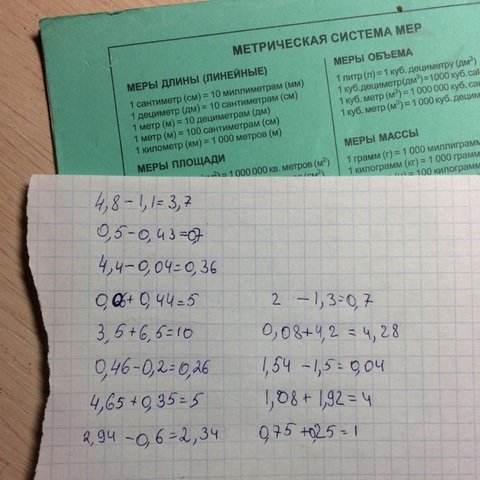 МЕТРИЧЕСКАЯ СИСТЕМА МЕР
МЕРЫ ДЛИНЫ (ЛИНЕЙНЫЕ)
1 сантиметр (см) = 10 миллиметрам (мм)
1 дециметр (дм) = 10 сантиметрам (см)
1 метр (м) = 10 дециметрам (дм)
1 метр (м) = 100 сантиметрам (см)
1 километр (км) = 1 000 метров (м)
МЕРЫ ПЛОЩАДИ
= 1 000 000 кв. метров (м²)
МЕРЫ ОБЪЕМА
1 литр (л) = 1 куб. дециметру (дм³)
1 куб.дециметр(дм³)=1000 куб.са
1 куб. метр (м³) = 1 000 000 куб.
1 куб. метр (м³) = 1 000 куб. децим
МЕРЫ МАССЫ
1 грамм (г) = 1 000 миллигра
1 килограмм (кг) = 1 000 грамм
= 100 килог
4,8 - 1,1 = 3,7
0,5 - 0,43 = 0,7
4,4 - 0,04 = 0,36
0,06 + 0,44 = 5
3,5 + 6,5 = 10
0,46 - 0,2 = 0,26
4,65 + 0,35 = 5
2,94 - 0,6 = 2,34
2 - 1,3 = 0,7
0,08 + 4,2 = 4,28
1,54 - 1,5 = 0,04
1,08 + 1,92 = 4
0,75 + 0,25 = 1